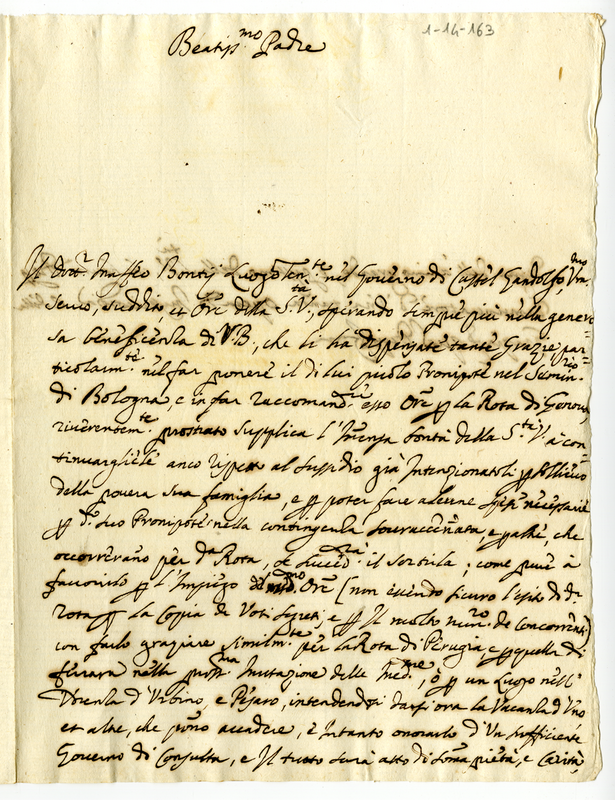 1-14-163
Beatiss.mo Padre
Il dott.r Maffeo Bontij Luogo Ten.te nel Governo di Castel Gandolfo, Vm̃o
Servo, suddito, et Ore della S.tà V., sperando sempre più nella genero=
sa beneficenza di V.B., che li ha dispensate tante Grazie par=
ticolarm.te nel far ponere il di lui picolo Pronipote nel Semin.rio
di Bologna, e in far raccomand.re esso Ore p la Rota di Genova,
riverentem.te prostrato supplica l'Imensa bontà della S.tà V. à con=
tinuargliele anco rispetto al sussidio già Intenzionatoli p sollievo
della povera sua famiglia, e p poter fare alcune spese necessarie
p d.o suo Pronipote nella contingenza sovraccennata, e p altre, che
occorrerano per d.a Rota, se il sortirla; come pure à
favorirlo p l'Impiego del med.mo Ore (non essendo sicuro l'esito di d.a
Rota p la Coppia de Voti segreti, e p Il molto num.ro de Concorrenti)
con farlo graziare similm.te per la Rota di Perugia e p quella di
Ferrara nella pross.ma Mutazione delle Med.me, ò p un Luogo nell'
Udienza d'Urbino, e Pesaro, intendendosi darsi ora la Vacanza d'Uno
et altre, che pono accadere, e Intanto onorarlo d'Un sufficiente
Governo di Consulta, e Il tutto sarà atto di soma pietà, e carità,